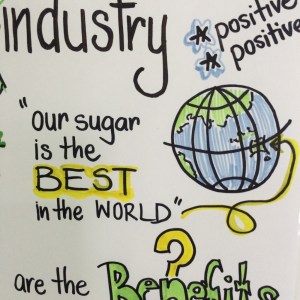 industry
* positive
* positive
"our sugar
is the
BEST
in the WORLD"
?
are the Benefits